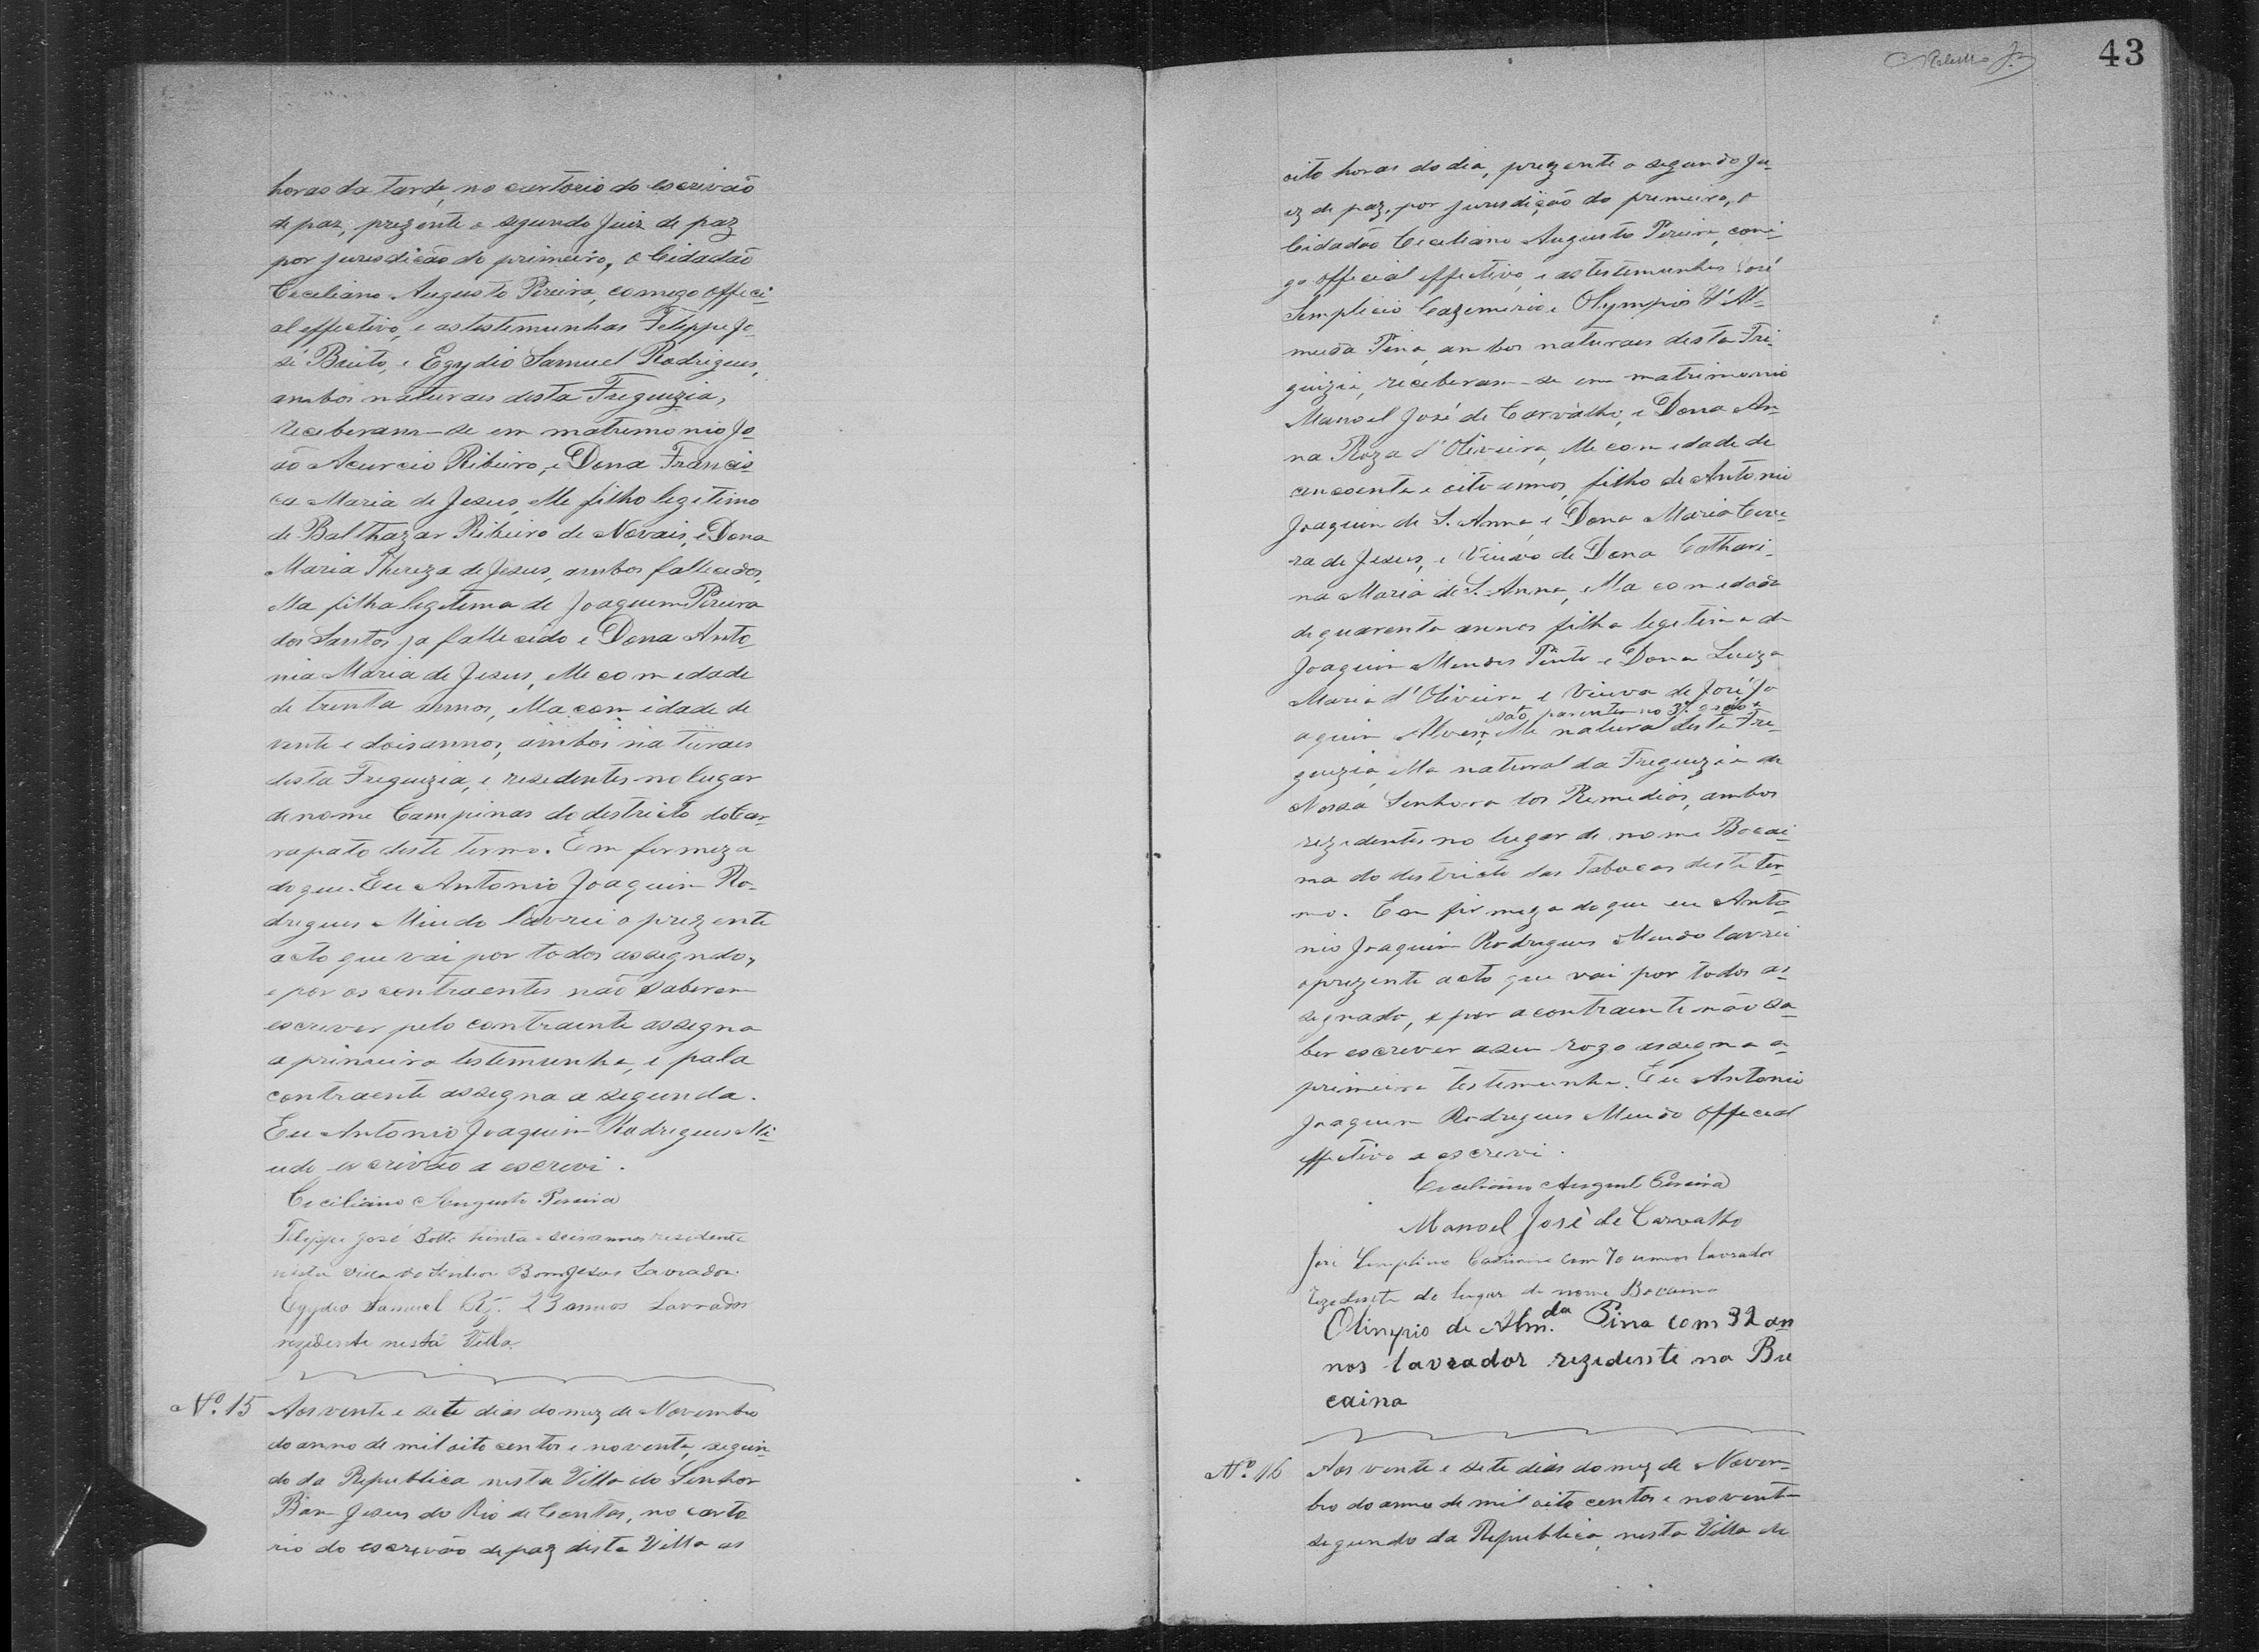 horas da tarde, no cartorio do escrivão
de paz, prezente o segundo Juiz de paz
por jurisdicão do primeiro, o Cidadão
Ceceliano Augusto Pereira, comigo offeci-
al effectivo, e as testemunhas Felippe Jo-
sé Britto, e Egydio Samuel Rodrigues,
ambos naturaes desta Freguizia,
receberam-se em matrimonio Jo-
ão Acurcio Ribeiro, e Dona Francis-
ca Maria de Jesus, elle filho legitimo
de Balthazar Ribeiro de Novais, e Dona
Maria Thereza de Jesus, ambos fallecidos,
ella filha legitima de Joaquim Pereira
dos Santos ja fallecido e Dona Anto-
nia Maria de Jesus, elle com edade
de trinta annos, ella com idade de
vente e dois annos, ambos naturaes
desta Freguizia, e residentes no lugar
de nome Campinas do destricto do Car-
rapato deste termo. Em firmeza
do que. Eu Antonio Joaquim Ro-
drigues Miudo lavrei o prezente
acto que vai por todos assegndo,
e por os contraentes não saberem
escrever pelo contraente assegna
a primeira testemunha, e pala
contraente assegna a segunda.
Eu Antonio Joaquim Rodrigues Mi-
udo escrivão a escrevi.
Ceciliano Augusto Pereira
Felippe José Botto trinta e seis annos residente
nesta Villa do Senhor Bom Jesus Lavrador.
Egydio Samuel Rz. 23 annos Lavrador
rezidente nesta Villa.
Nº. 15 Aos vente e sete dias do mez de Novembro
do anno de mil oito centos e noventa, segun-
do da Republica nesta Villa do Senhor
Bom Jesus do Rio de Contas, no carto
rio do escrevão de paz desta Villa as
43
oito horas do dia, prezente o segundo Ju-
ez de paz, por jurisdição do primeiro, o
Cidadão Ceceliano Augusto Pereira, comi-
go official effectivo, e as testemunhas José
Simplicio Cazemerio e Olympio d'Al-
meida Pina, ambos naturaes desta Fre-
guizia, receberam-se em matrimonio
Manoel José de Carvalho, e Dona An-
na Roza d'Oliveira, elle com edade de
cincoenta e oito annos, filho de Antonio
Joaquim de S. Anna, e Dona Maria
ra de Jesus, e Viuvo de Dona Cathari-
na Maria de S. Anna, ella com edade
de quarenta annos filha legitima de
Joaquim Mendes Pinto e Dona Luiza
Maria d'Oliveira e Viuva de José Jo
são parentes no 3º. gráo
aquim Alves, elle natural desta Fre-
guizia, ella natural da Freguizia de
Nossa Senhora dos Remedios, ambos
rezedentes no lugar de nome Bocai-
na do destricto das Tabocas deste ter-
mo. Em firmeza do que eu Anto-
nio Joaquim Rodrigues Miudo lavrei
o prezente acto que vai por todos as-
segnado, e por a contraente não sa-
ber escrever a seu rogo assegna a
primeira testemunha. Eu Antonio
Joaquim Rodrigues Miudo Offecial
effectivo a escrevi.
Ceceliano August Pereira
Manoel José de Carvalho
José Simplicio com 70 annos lavrador
rezedente do lugar de nome Bocaina
Olimpio de Alm.da Pina com 32 an
nos lavrador rezidente na Bu
caina
Nº. 16 Aos vente e sete dias do mez de Novem-
bro do anno de mil oito centos e noventa
segundo da Republica, nesta Villa do